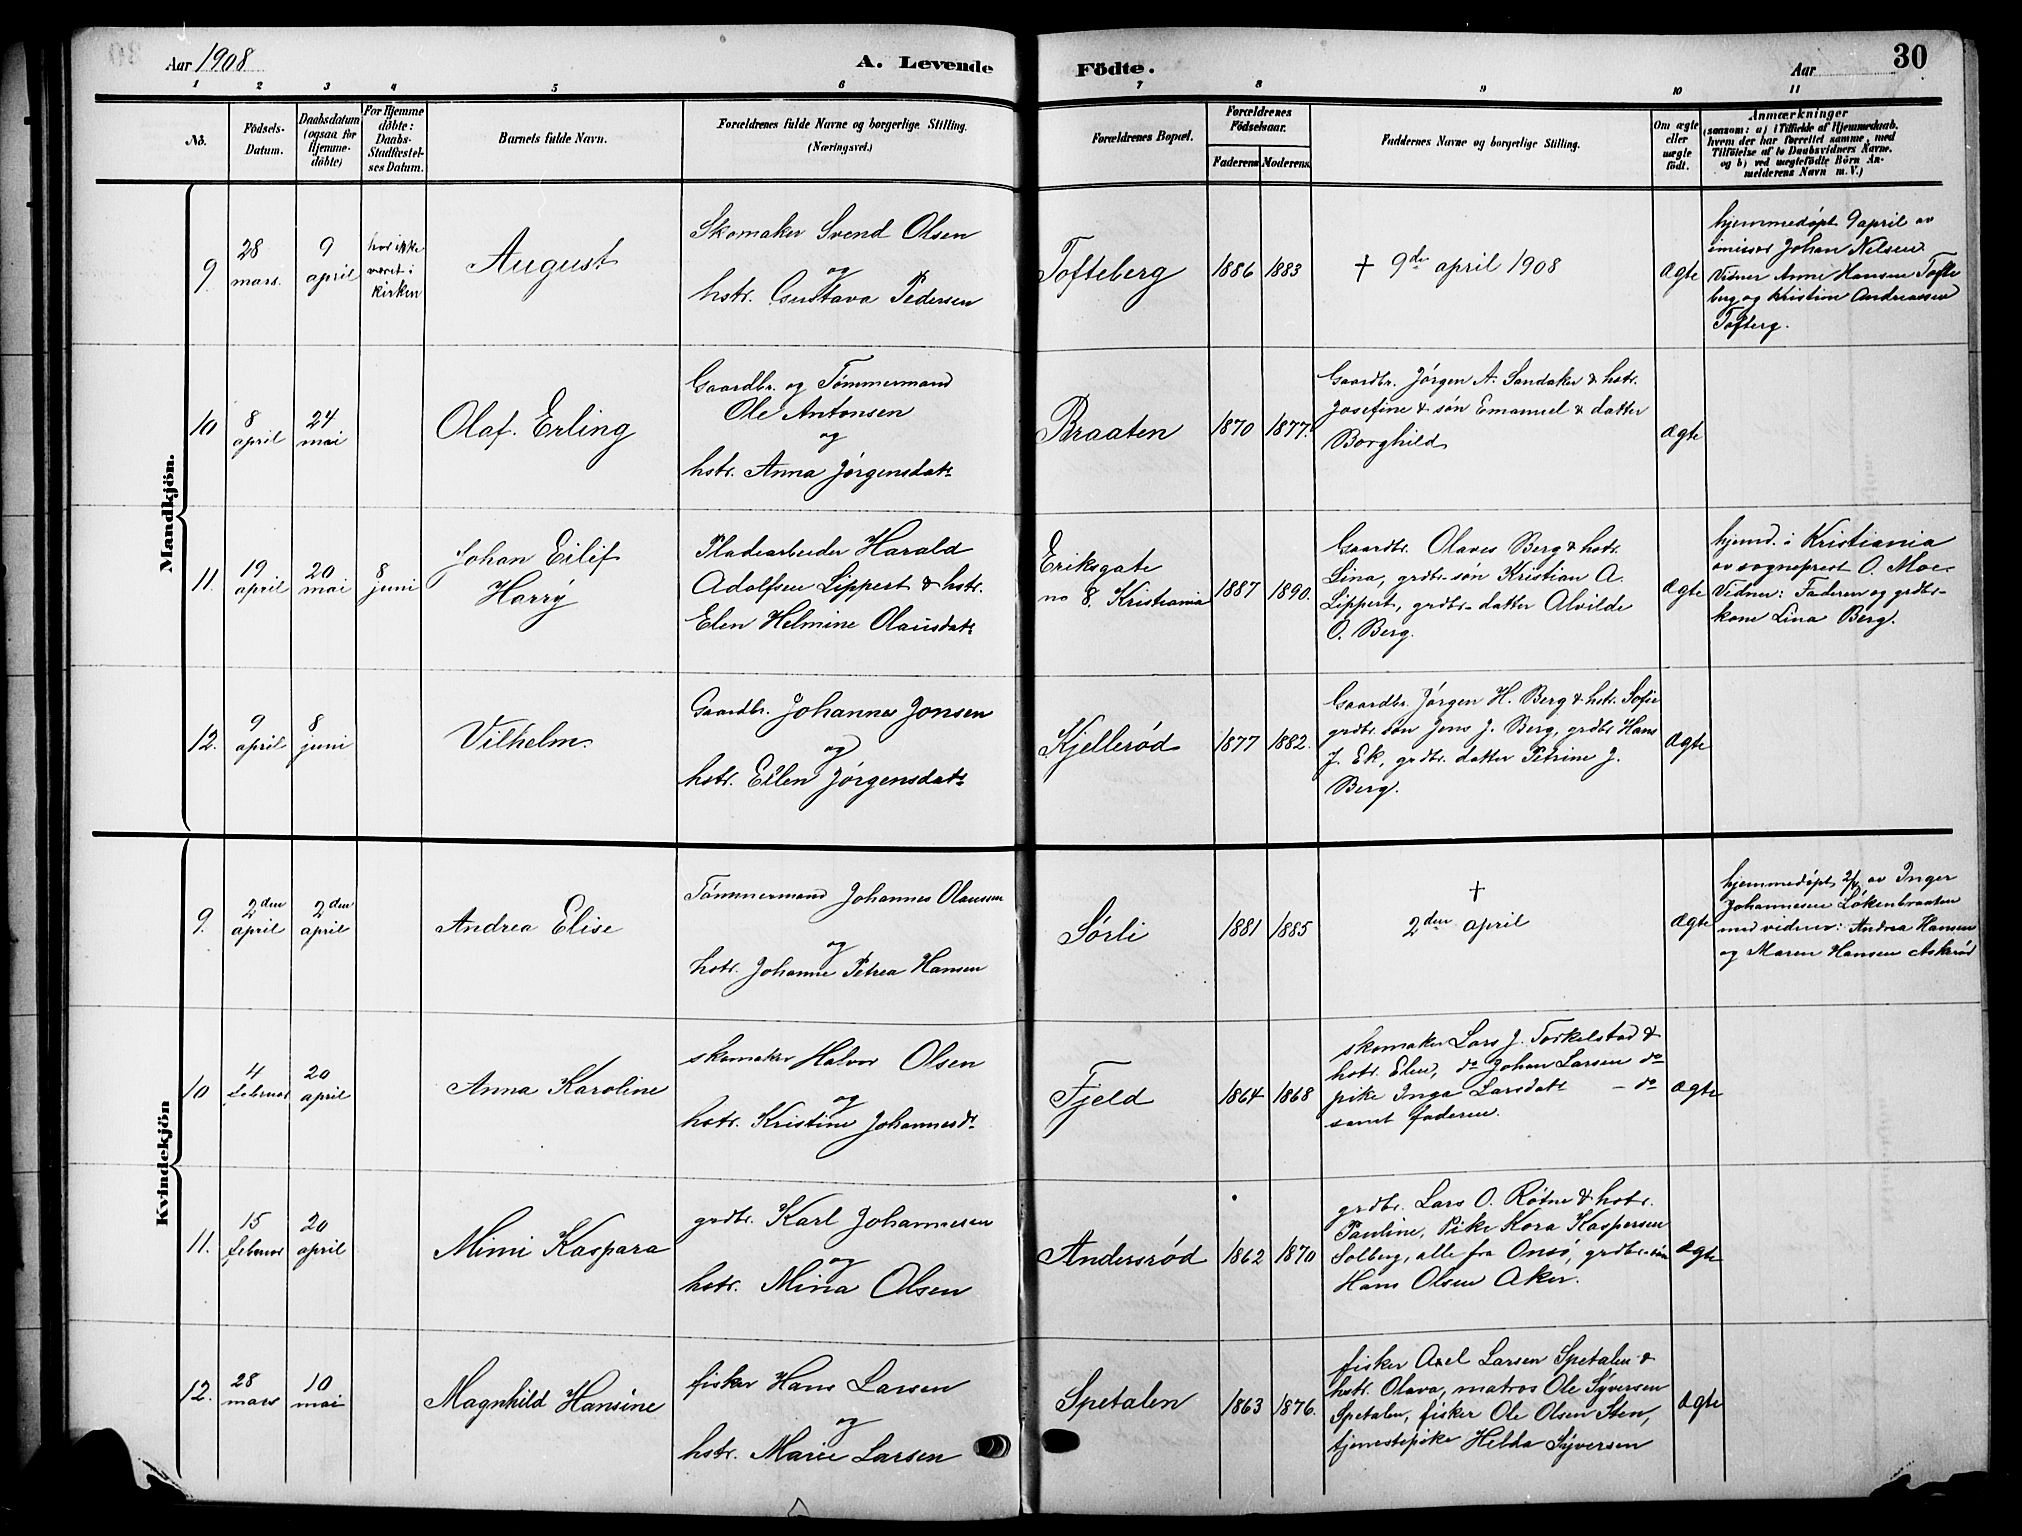 Aar 1908
A. Levende
Födte.
Aar
30
1 2 3 4 5 6 7 8 9 10 11
No.
Födsels-
Datum.
Daabsdatum
(ogsaa for
Hjemme-
döbte)
For Hjemme
döbte:
Daabs-
Stadfæstel-
ses Datum.
Barnets fulde Navn.
Forældrenes fulde Navne og borgerlige Stilling.
(Næringsvei.)
Forældrenes Bopæl.
Forældrenes
Födselsaar.
Faderens
Moderens.
Faddernes Navne og borgerlige Stilling.
Om ægte
eller
uægte
födt.
Anmærkninger
(saasom: a) i Tilfælde af Hjemmedaab,
hvem der har forrettet samme, med
Tilföielse af to Daabsvidners Navne,
og b) ved uægtefödte Börn An-
melderens Navn m. V.)
Mandkjön.
9
28
mars.
9
april
har ikke
været i
kirken
August
Skomaker Svend Olsen
og
hstr. Gustava Pedersen
Tofteberg
1886
1883
† 9de april 1908
Ægte
hjemmedøpt 9 april av
emissær Johan Nelsen
Vidner Anne Hansen Tofte
berg og Kristian Andreassen
Tofterg.
10
8
april
24
mai
Olaf Erling
Gaardbr. og Tømmermand
Ole Antonsen
og
hstr. Anna Jørgensdatr
Braaten
1870
1877.
Gaardbr. Jørgen A. Sandaker & hstr.
Josefine & søn Emanuel & datter
Borghild
Ægte
11.
19
april
20
mai
8
juni
Johan Eilif
Harry
Pladearbeider Harald
Adolfsen Lippert & hstr.
Elen Helmine Olausdatr
Eriksgate
no 8. Kristiania
1887
1890.
Gaardbr. Olaves Berg & hstr.
Lina, grdbr-søn Kristian A.
Lippert, grdbr-datter Alvilde
O. Berg.
Ægte
hjemd. i Kristiania
av sogneprest O. Moe.
Vidner: Faderen og grdbr-
kone Lina Berg.
12.
9
april
8
juni
Vilhelm.
Gaardbr. Johannes Jonsen
og
hstr. Ellen Jørgensdatr
Kjellerød
1877
1882.
Gaardbr. Jørgen H. Berg & hstr. Sofie
grdbr. søn Jens J. Berg, grdbr. Hans
J. Ek, grdbr. datter Petrine J.
Berg.
Ægte
Kvindekjön
9.
2den
april
2den
april
Andrea Elise
Tømmermand Johannes Olaussen
og
hstr. Johanne Petrea Hansen
Sørli
1881
1885
†
2den april
Ægte
hjemmedøpt 2/4 av Inger
Johannesen Løkenbraaten
med vidner: Andrea Hansen
og Maren Hansen Askerød
10
4
februar
20
april
Anna Karoline
skomaker Halvor Olsen
og
hstr. Kristine Johannesdr.
Fjeld
1864
1868
skomaker Lars J. Torkelstad &
hstr. Elen, do Johan Larsen do
pike Inga Larsdatr – do
samt faderen.
Ægte
11.
15
februar
20
april
Mimi Kaspara
grdbr. Karl Johannesen
og
hstr. Mina Olsen
Andersrød
1862
1870
grdbr. Lars O. Røtne & hstr.
Pauline, Pike Kora Kaspersen
Solberg, alle fra Onsø, grdbr-søn
Hans Olsen Aker.
Ægte
12.
28
mars
10
mai
Magnhild Hansine
fisker Hans Larsen
og
hstr. Marie Larsen
Spetalen
1863
1876.
fisker Axel Larsen Spetalen &
hstr. Olava, matros Ole Syversen
Spetalen, fisker Ole Olsen Sten,
tjenestepike Helda Syversen
Ægte